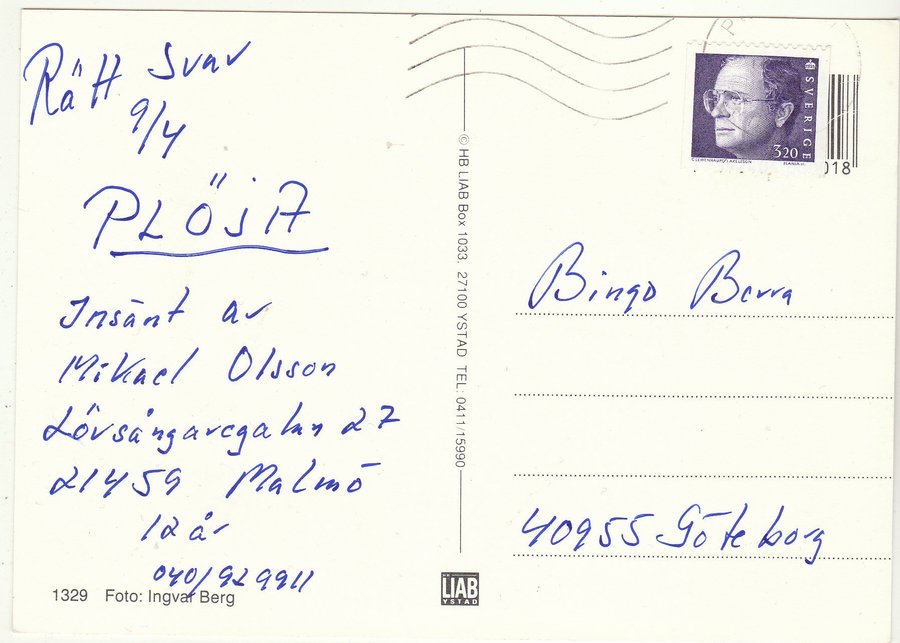 Rätt Svar
9/4
PLÖJA
Insänt av
Mikael Olsson
Lövsångaregatan 27
21459 Malmö
12 år
040/929911
1329 Foto: Ingvar Berg
© HB LIAB Box 1033, 27100 YSTAD TEL: 0411/15990
LIAB
YSTAD
SVERIGE
3.20
018
Bingo Berra
40955 Göteborg